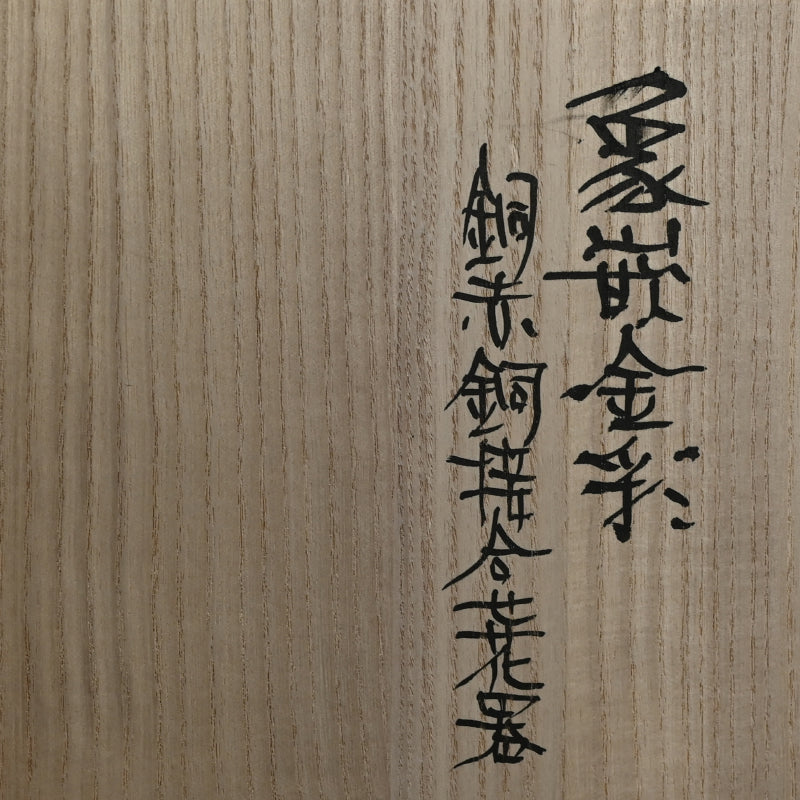 象嵌金彩
銅赤銅接合花器